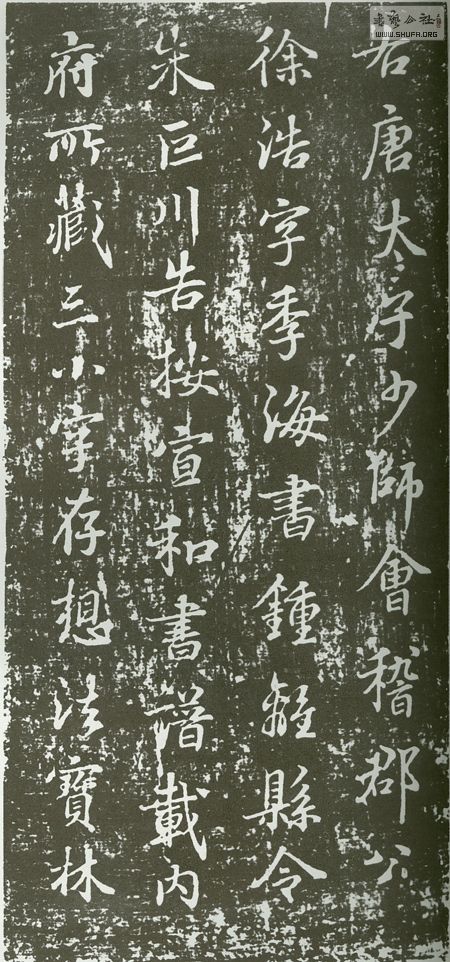 書藝公社
WWW.SHUFA.ORG
右唐太子少師會稽郡公
徐浩字季海書鍾離縣令
朱巨川告按宣和書譜載內
府所藏三小字存想法寶林